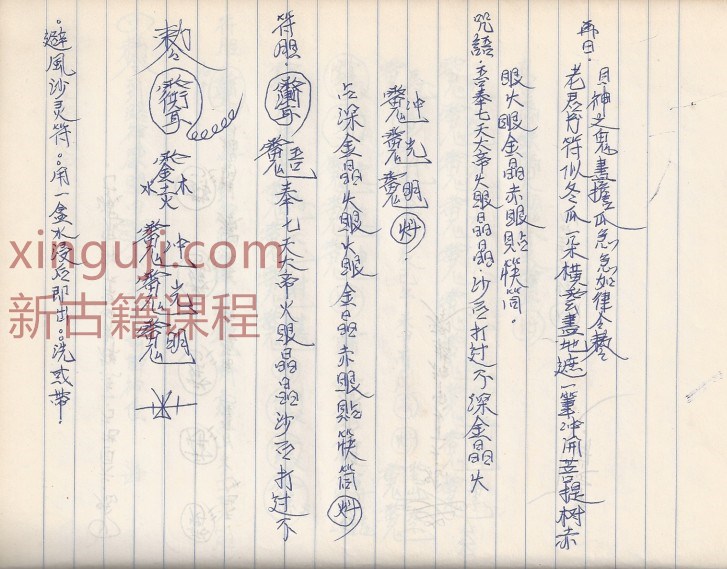 再日：月神之鬼畫擔瓜急急如律令
老君符似冬瓜一朵橫 畫地遮一筆冲開菩提树赤
眼火眼金晶赤眼貼筷筒。
咒語：吾奉七天大帝火眼晶晶．沙石打过不深金晶火
冲光明
点深金晶火眼火眼金晶赤眼貼筷筒
符胆：吾奉七天大帝火眼晶晶沙石打过不
敕
木 水 火
冲光明
。避風沙灵符。用一盒水浸后即出。洗或帶。
xinguji.com
新古籍课程